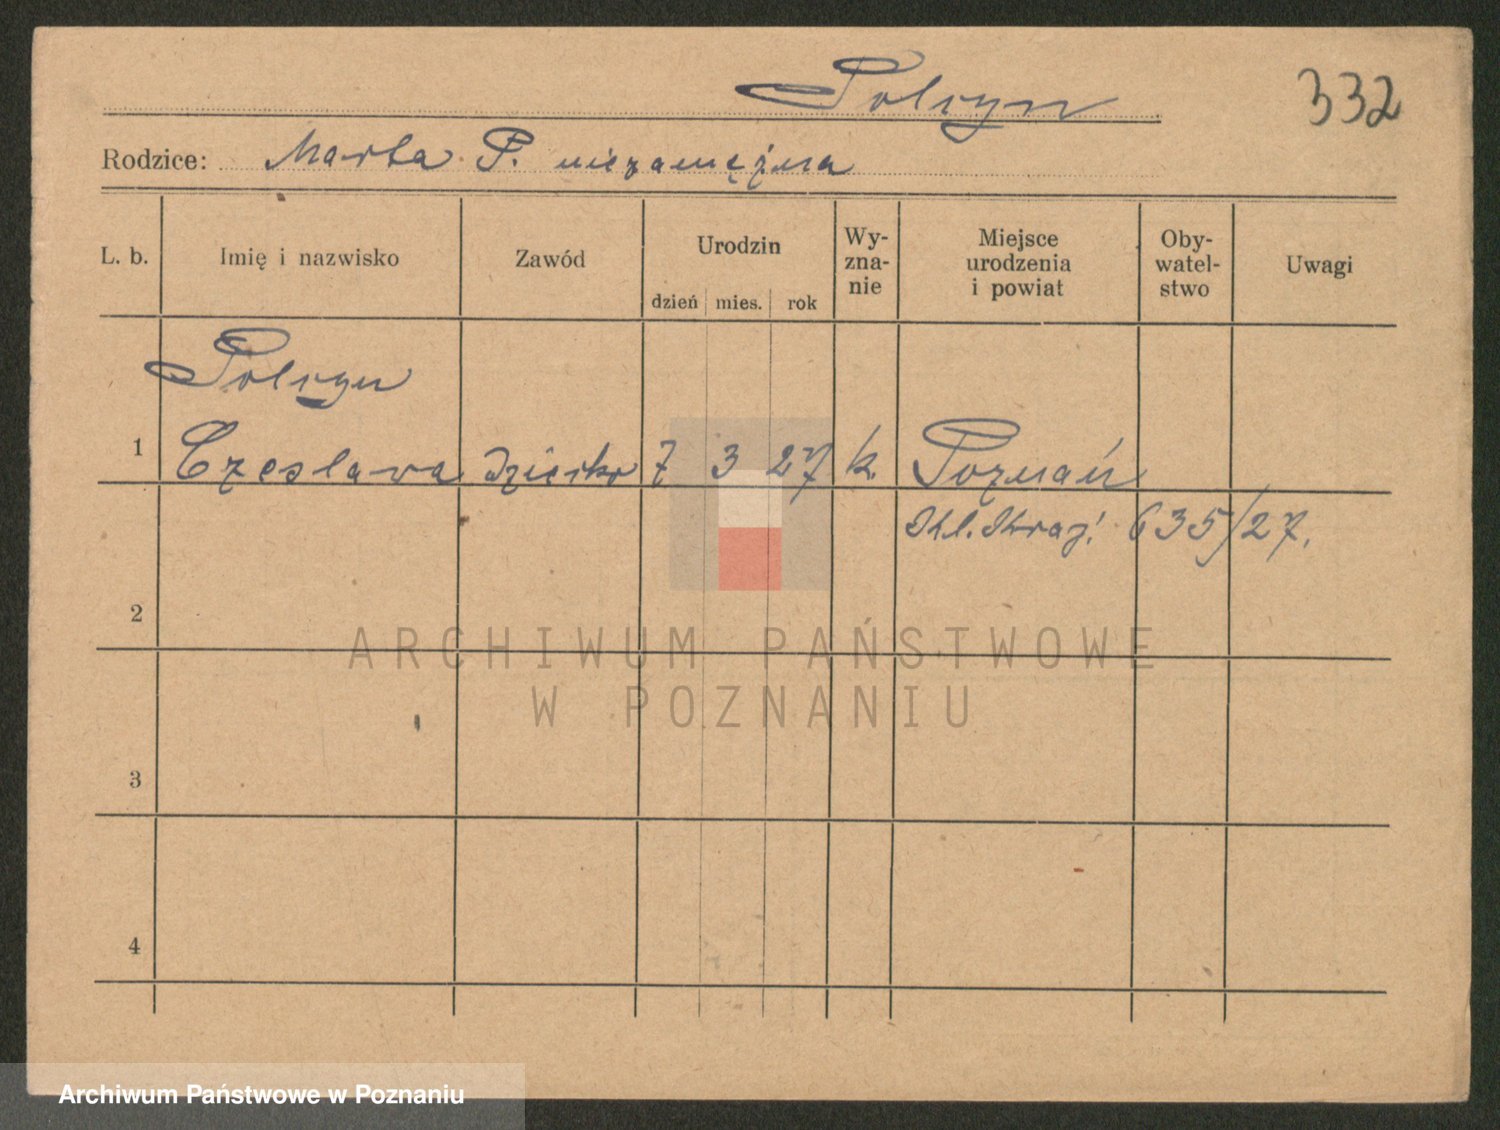 Polcyn 332
Rodzice: Marta P. niezamężna
L. b. Imię i nazwisko Zawód Urodzin dzień mies. rok Wy-zna-nie Miejsce urodzenia i powiat Oby-watel-stwo Uwagi
Polcyn
1 Czesława dziecko 7 3 27 k. Poznań
635/27.
2
ARCHIWUM PAŃSTWOWE
W POZNANIU
3
4
Archiwum Państwowe w Poznaniu